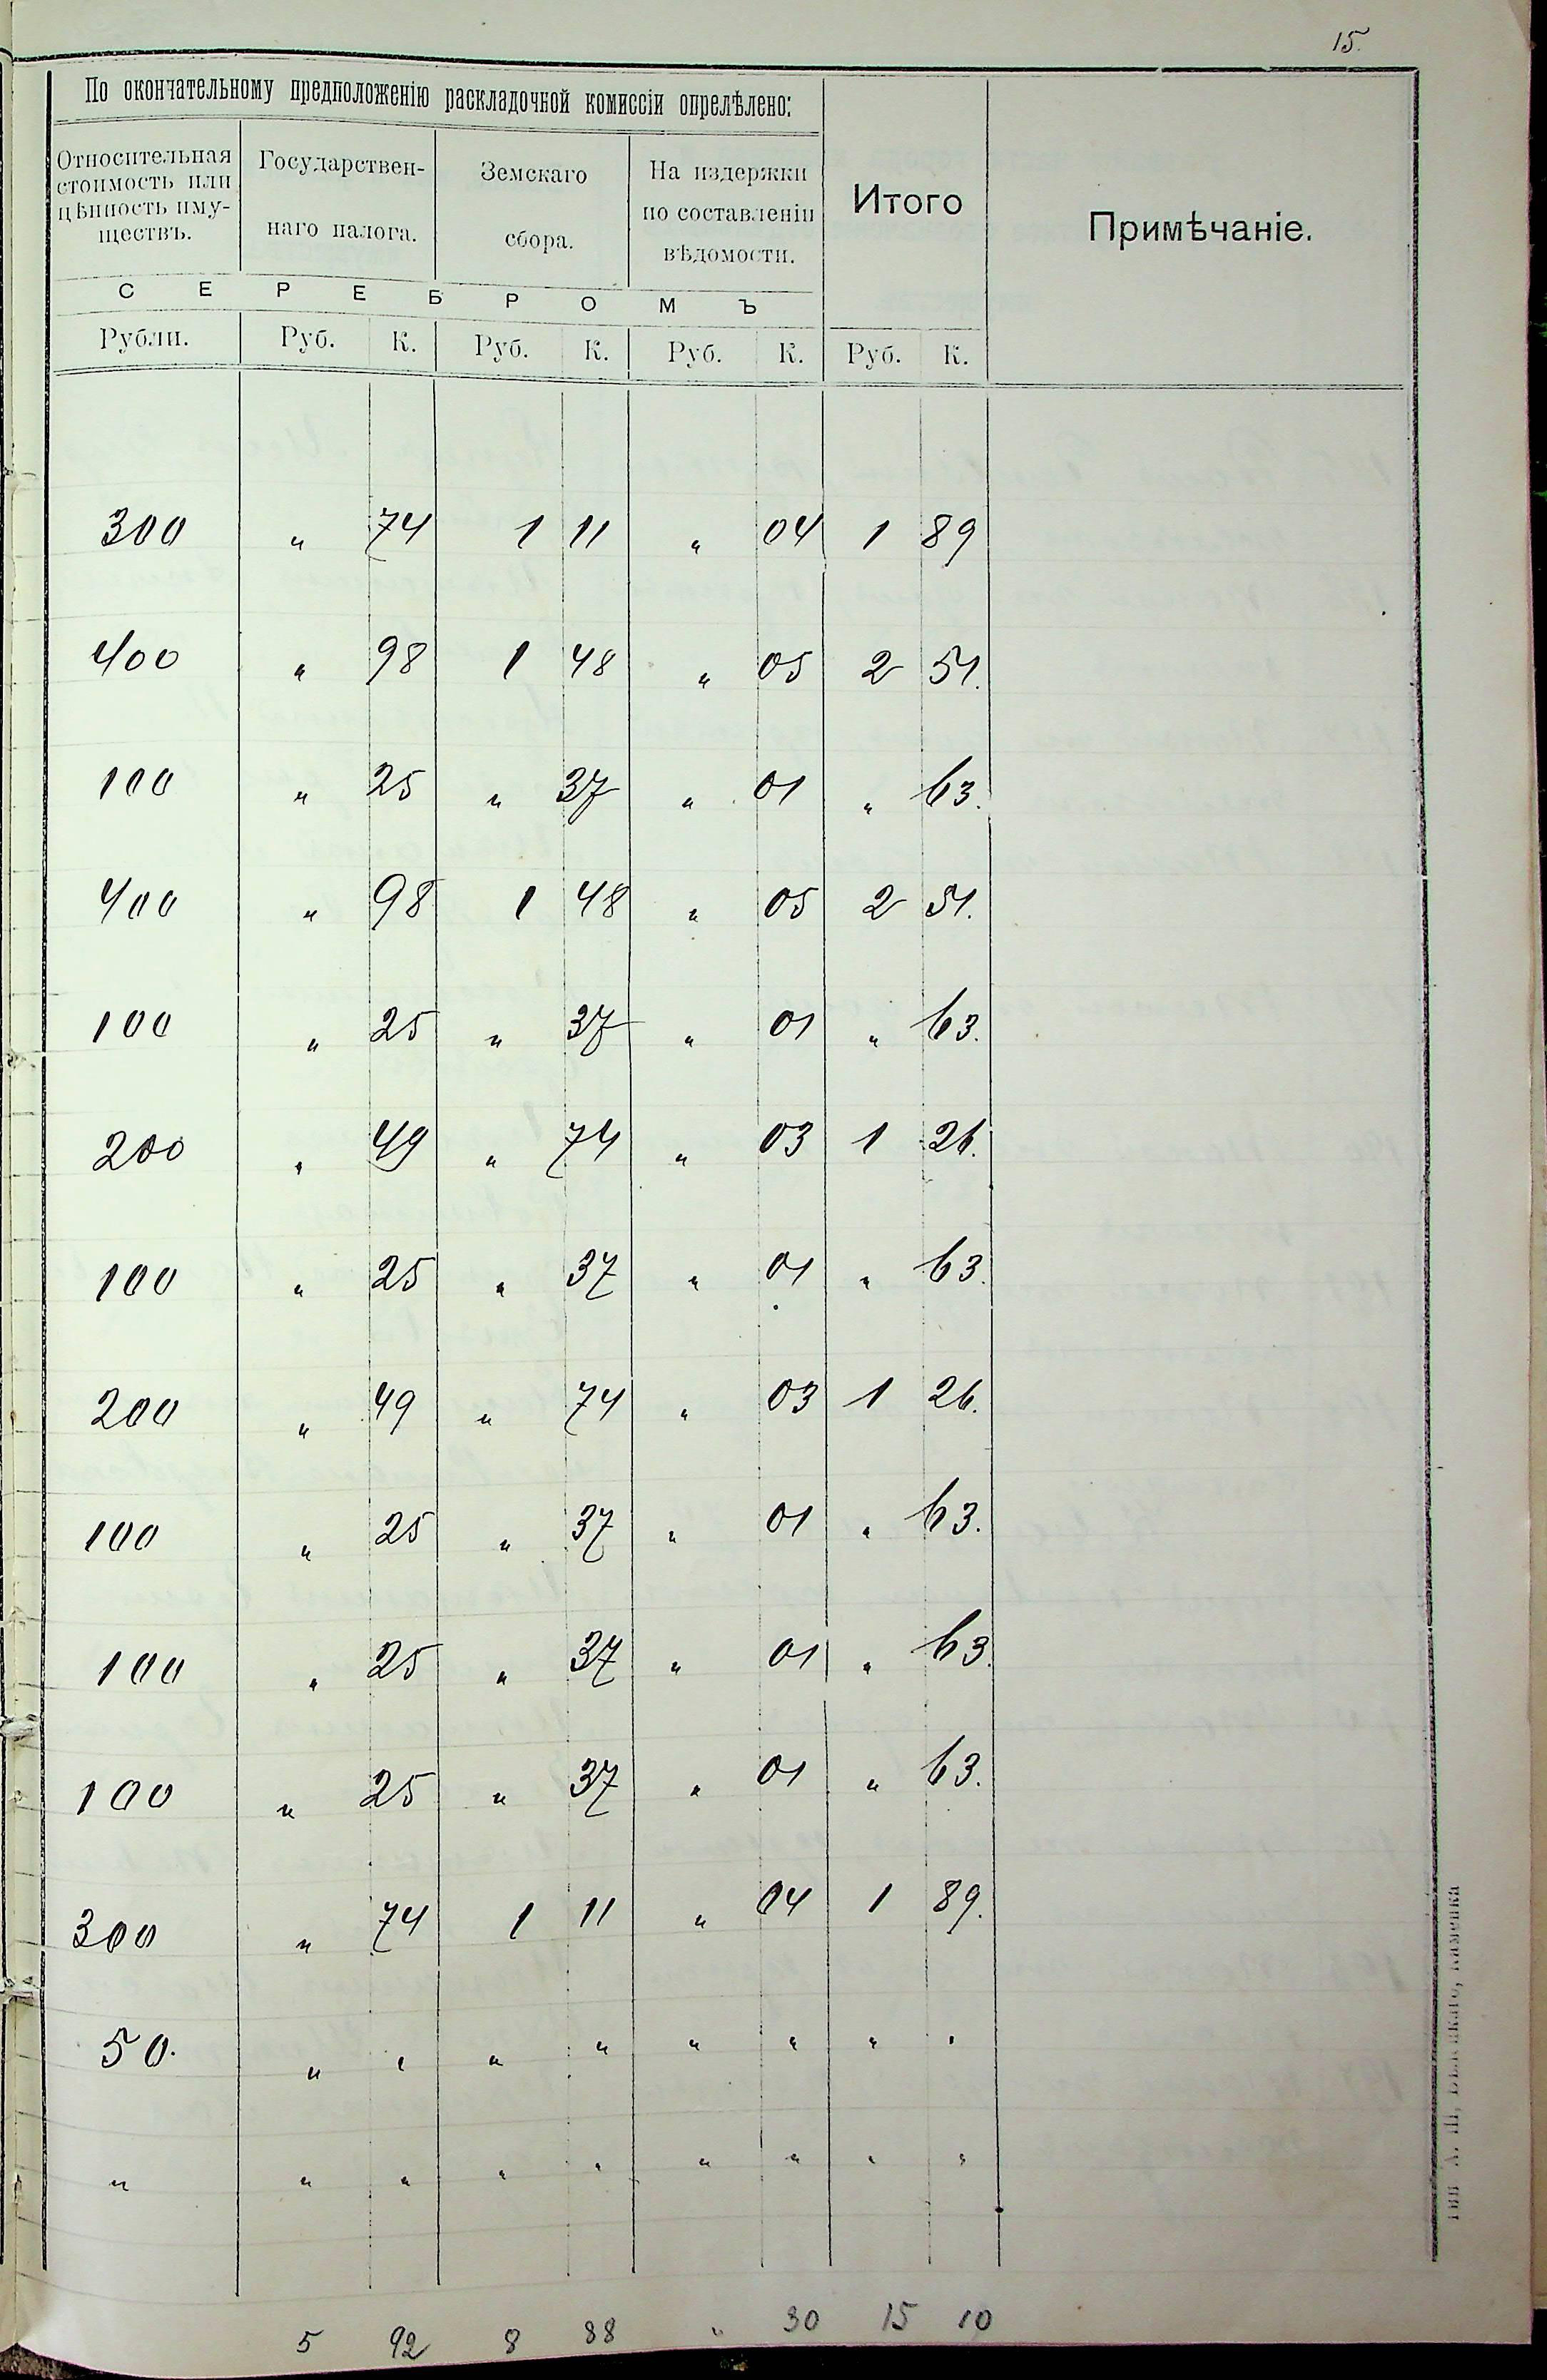 15.
По окончательному предположенію раскладочной комиссіи опрелѣлено:
Относительная стоимость или цѣнность иму- ществъ.
Государствен- наго налога.
Земскаго сбора.
На издержки по составленіи вѣдомости.
Итого
Примѣчаніе.
С Е Р Е Б Р О М Ъ
Рубли. Руб. К. Руб. К. Руб. К. Руб. К.
300 " 74 1 11 " 04 1 89
400 " 98 1 48 " 05 2 51.
100 " 25 " 37 " 01 " 63.
400 " 98 1 48 " 05 2 51.
100 " 25 " 37 " 01 " 63.
200 " 49 " 74 " 03 1 26.
100 " 25 " 37 " 01 " 63.
200 " 49 " 74 " 03 1 26.
100 " 25 " 37 " 01 " 63.
100 " 25 " 37 " 01 " 63.
100 " 25 " 37 " 01 " 63.
300 " 74 1 11 " 04 1 89.
50. " " " " " " " "
" " " " " " " " "
5 92 8 88 " 30 15 10
Каменка